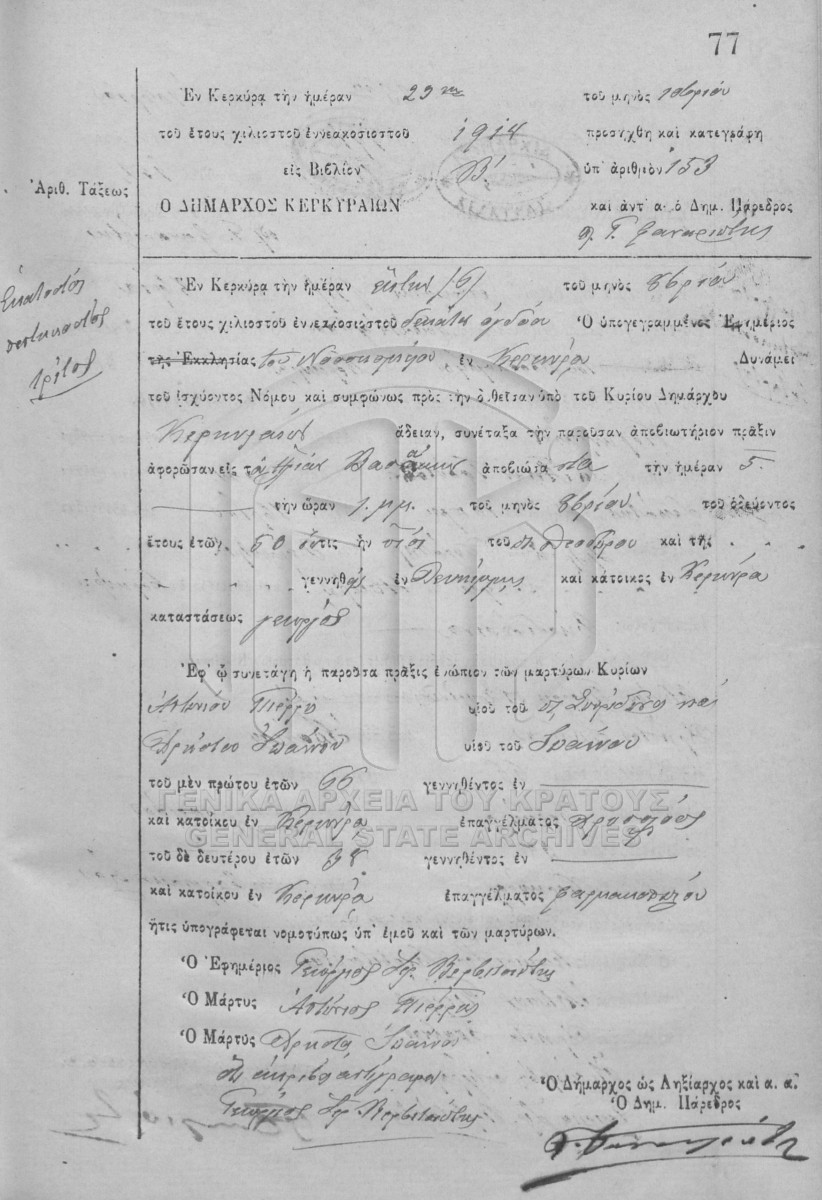 77
Ἐν Κερκύρᾳ τὴν ἡμέραν 29ην τοῦ μηνὸς
τοῦ ἔτους χιλιοστοῦ ἐννεακοσιοστοῦ 1918 προσήχθη καὶ κατεγράφη
εἰς Βιβλίον Β' ὑπ' ἀριθμὸν 153
Ἀριθ. Τάξεως
Ὁ ΔΗΜΑΡΧΟΣ ΚΕΡΚΥΡΑΙΩΝ καὶ ἀντ' α· ὁ Δημ. Πάρεδρος
Ἑκατοστὸς
πεντηκοστὸς
τρίτος
Ἐν Κερκύρᾳ τὴν ἡμέραν ἕκτην (6) τοῦ μηνὸς
τοῦ ἔτους χιλιοστοῦ ἐννεακοσιοστοῦ δεκάτου ὀγδόου Ὁ ὑπογεγραμμένος Ἐφημέριος
τῆς Ἐκκλησίας τοῦ Νοσοκομείου ἐν Κερκύρᾳ Δυνάμει
τοῦ ἰσχύοντος Νόμου καὶ συμφώνως πρὸς τὴν δοθεῖσαν ὑπὸ τοῦ Κυρίου Δημάρχου
Κερκυραίων ἄδειαν, συνέταξα τὴν παροῦσαν ἀποβιωτήριον πρᾶξιν
ἀφορῶσαν εἰς τὸν Ἠλίαν ἀποβιώσαντα τὴν ἡμέραν 5
τὴν ὥραν 1 μ.μ. τοῦ μηνὸς τοῦ ὁδεύοντος
ἔτους ἐτῶν 50 ὅστις ἦν υἱὸς τοῦ Θεοδώρου καὶ τῆς
γεννηθεὶς ἐν Λευκίμμῃ καὶ κάτοικος ἐν Κερκύρᾳ
καταστάσεως γεωργὸς
Ἐφ' ᾧ συνετάγη ἡ παροῦσα πρᾶξις ἐνώπιον τῶν μαρτύρων Κυρίων
Ἀντωνίου Πιέρρη υἱοῦ τοῦ π. Σπυρίδωνος καὶ
Χρήστου Ἰωάννου υἱοῦ τοῦ Ἰωάννου
τοῦ μὲν πρώτου ἐτῶν 66 γεννηθέντος ἐν
ΓΕΝΙΚΑ ΑΡΧΕΙΑ ΤΟΥ ΚΡΑΤΟΥΣ
καὶ κατοίκου ἐν Κερκύρᾳ ἐπαγγέλματος
GENERAL STATE ARCHIVES
τοῦ δὲ δευτέρου ἐτῶν 38 γεννηθέντος ἐν
καὶ κατοίκου ἐν Κερκύρᾳ ἐπαγγέλματος φαρμακοποιοῦ
ἥτις ὑπογράφεται νομοτύπως ὑπ' ἐμοῦ καὶ τῶν μαρτύρων.
Ὁ Ἐφημέριος Γεώργιος
Ὁ Μάρτυς Ἀντώνιος Πιέρρης
Ὁ Μάρτυς Χρῆστος Ἰωάννου
Ὅτι ἀκριβὲς ἀντίγραφον
Γεώργιος
Ὁ Δήμαρχος ὡς Ληξίαρχος καὶ α. α.
Ὁ Δημ. Πάρεδρος